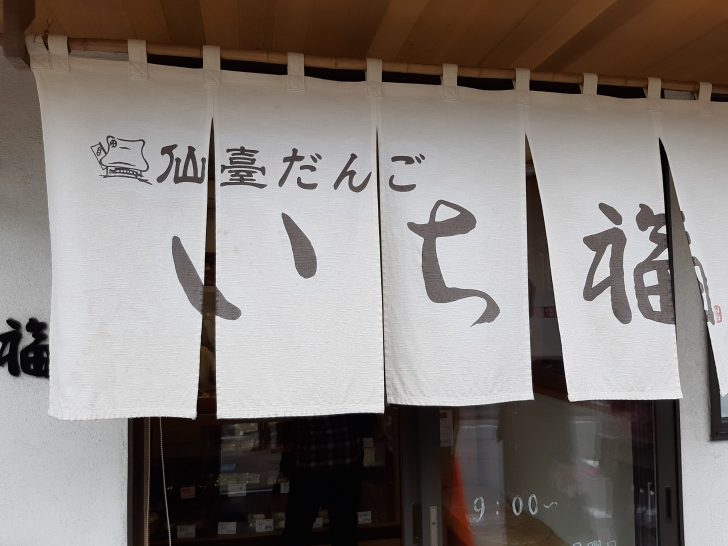 仙臺だんご
いち福
福
9:00~